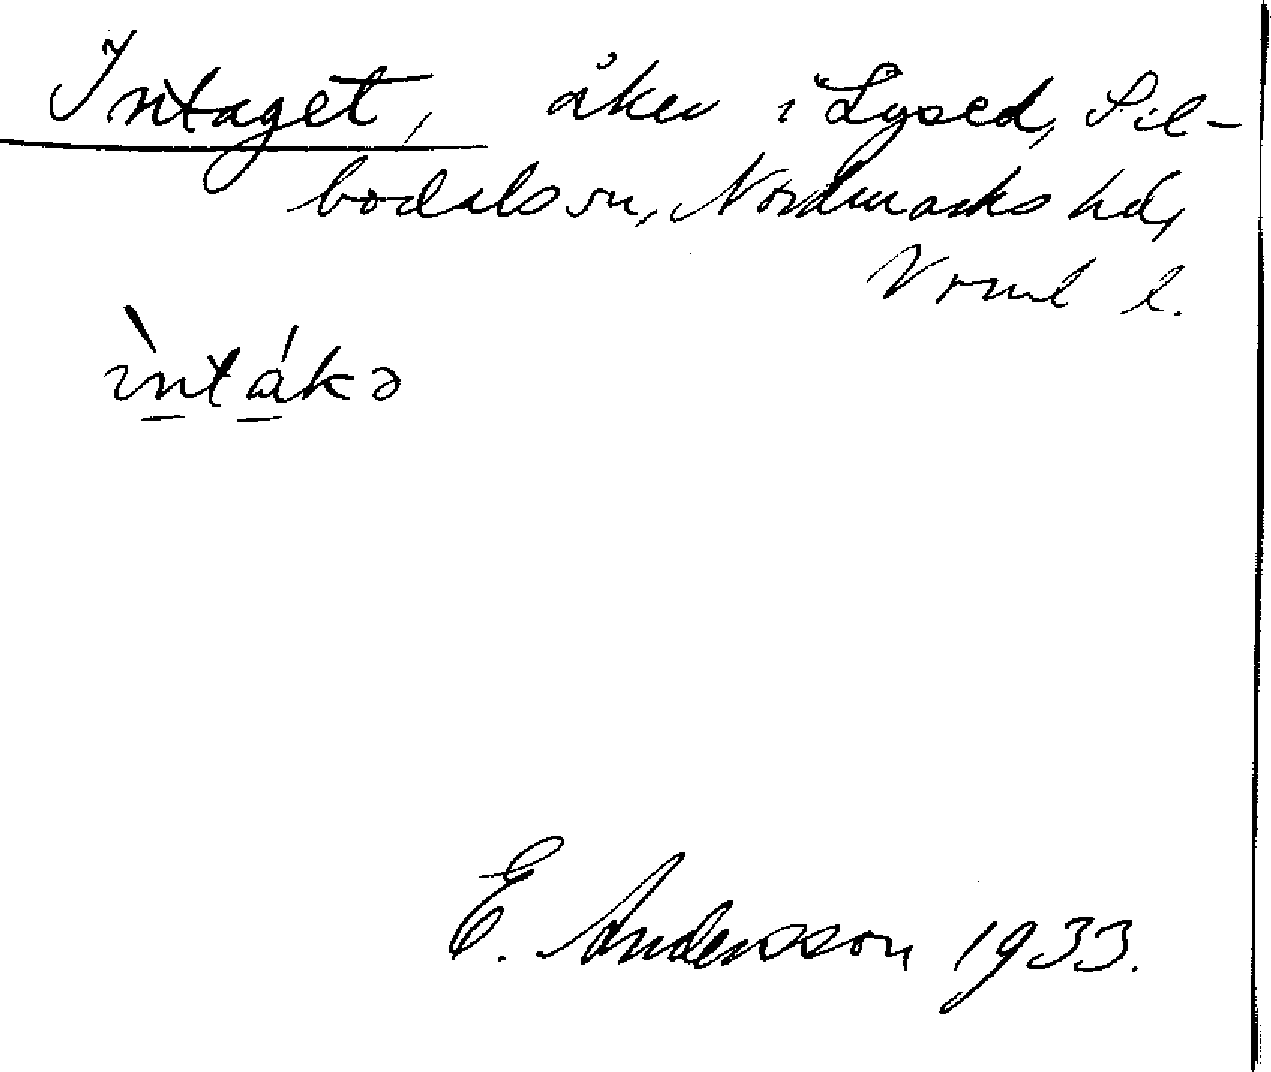 Intaget, åker i Lysed, Sil-
bodals sn, Nordmarks hd,
Vrml l.
ìntákə
E. Andersson 1933.